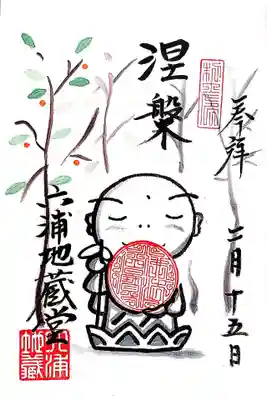 奉拝
二月十五日
涅槃
六浦地蔵堂
六浦
地蔵